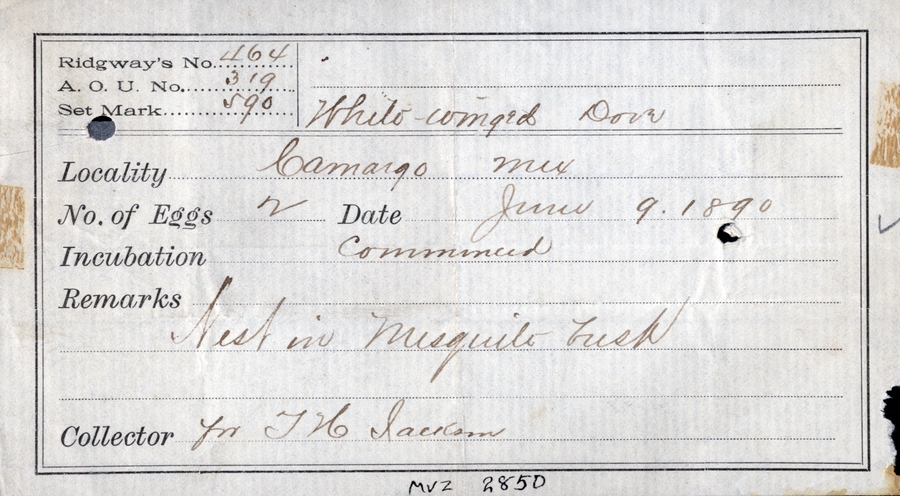 Ridgway's No. 464
A. O. U. No. 319
Set Mark 590
White-winged Dove
Locality Camargo Mex
No. of Eggs 2 Date June 9. 1890
Incubation Commenced
Remarks
Nest in Mesquite bush
Collector for T H Jackson
MVZ 2850